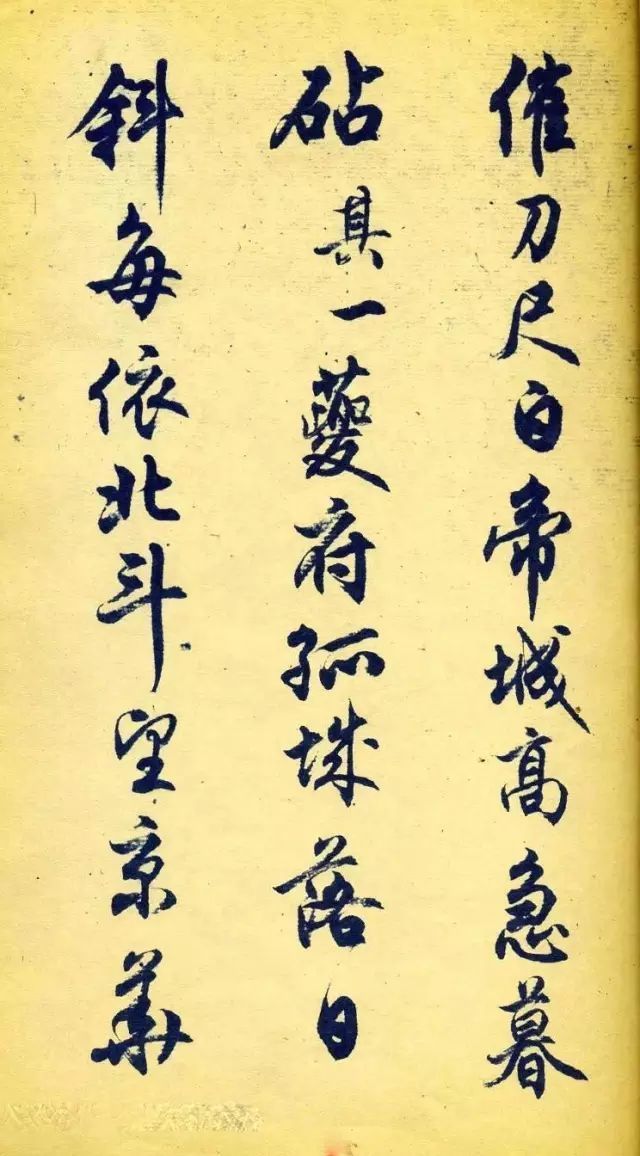 催刀尺白帝城高急暮
砧其一夔府孤城落日
斜每依北斗望京華